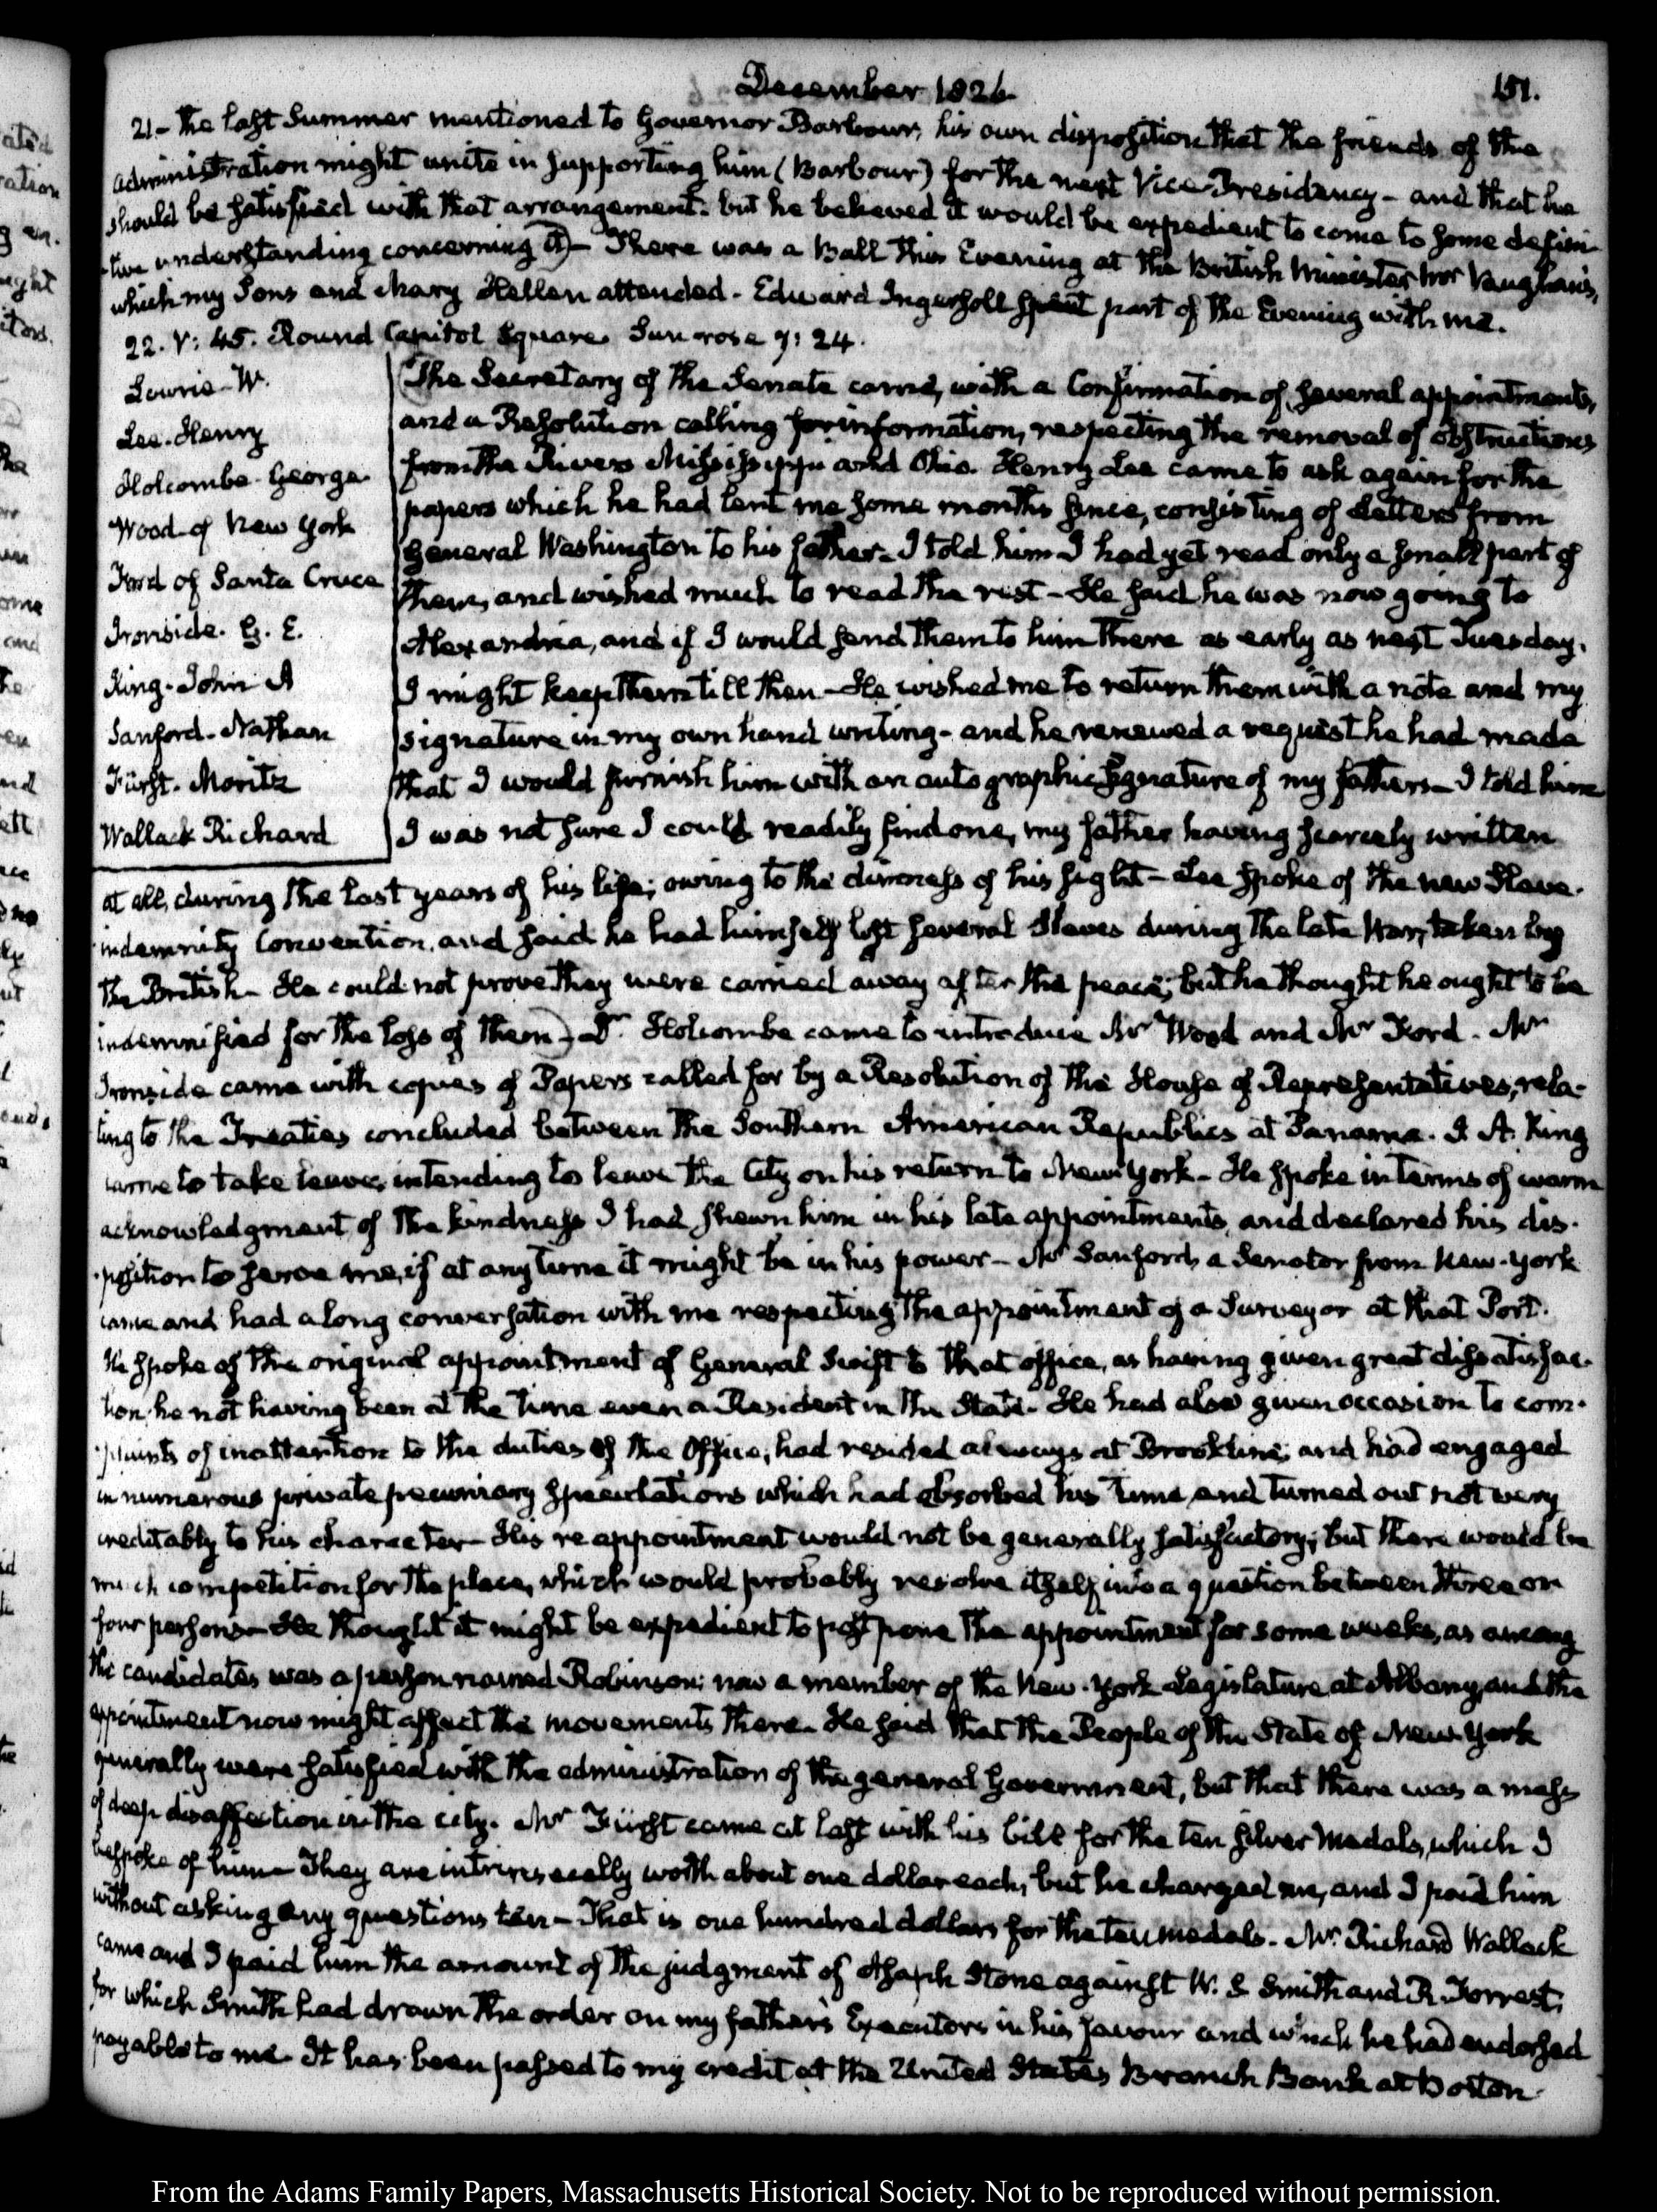 December 1826.
151.
21 - the last Summer mentioned to Governor Barbour, his own disposition that the friends of the
administration might unite in supporting him (Barbour) for the next Vice-Presidency - and that he
should be satisfied with that arrangement. but he believed it would be expedient to come to some defini-
-tive understanding concerning it) - There was a Ball this Evening at the British Minister Mr Vaughan's,
which my Sons and Mary Hellen attended - Edward Ingersoll spent part of the Evening with me.
22. V: 45. Round Capitol Square. Sun rose 7: 24.
Lowrie - W.
Lee. Henry
Holcombe - George
Wood of New York
Ford of Santa Cruce
Ironside. G. E.
King - John A
Sanford - Nathan
Fürst. Moritz
Wallack Richard
The Secretary of the Senate came, with a Confirmation of several appointments,
and a Resolution calling for information, respecting the removal of obstructions
from the Rivers Mississippi and Ohio. Henry Lee came to ask again for the
papers which he had lent me some months since, consisting of Letters from
General Washington to his father - I told him I had yet read only a small part of
them, and wished much to read the rest - He said he was now going to
Alexandria, and if I would send them to him there as early as next Tuesday,
I might keep them till then - He wished me to return them with a note and my
signature in my own hand writing - and he renewed a request he had made
that I would furnish him with an autographic signature of my father's - I told him
I was not sure I could readily find one, my father having scarcely written
at all, during the last years of his life; owing to the dimness of his sight - Lee spoke of the new Slave-
indemnity Convention, and said he had himself lost several Slaves during the late War, taken by
the British - He could not prove they were carried away after the peace; but he thought he ought to be
indemnified for the loss of them) - Dr. Holcombe came to introduce Mr Wood and Mr Ford. Mr
Ironside came with copies of Papers called for by a Resolution of the House of Representatives, rela-
ting to the Treaties concluded between the Southern American Republics at Panama. J. A. King
came to take leave, intending to leave the City on his return to New York - He spoke in terms of warm
acknowledgment of the kindness I had shewn him in his late appointments, and declared his dis-
-position to serve me, if at any time it might be in his power - Mr Sanford, a Senator from New-York
came and had a long conversation with me respecting the appointment of a Surveyor at that Port.
He spoke of the original appointment of General Swift to that office, as having given great dissatisfac-
tion, he not having been at the time even a Resident in the State. He had also given occasion to com-
-plaints of inattention to the duties of the Office; had resided always at Brookline; and had engaged
in numerous private pecuniary speculations which had absorbed his time, and turned out not very
creditably to his character - His reappointment would not be generally satisfactory; but there would be
much competition for the place, which would probably resolve itself into a question between three or
four persons - He thought it might be expedient to postpone the appointment for some weeks, as among
the candidates was a person named Robinson; now a member of the New-York Legislature at Albany, and the
appointment now might affect the movements there. He said that the People of the State of New York
generally were satisfied with the administration of the general Government, but that there was a mass
of deep disaffection in the city. Mr Fürst came at last with his bill for the ten silver Medals, which I
bespoke of him - They are intrinsecally worth about one dollar each, but he charged me, and I paid him
without asking any questions ten - That is one hundred dollars for the ten medals. Mr. Richard Wallack
came and I paid him the amount of the judgment of Asaph Stone against W. S. Smith and R. Forrest,
for which Smith had drawn the order on my father's Executors in his favour and which he had endorsed
payable to me. It has been passed to my credit at the United States Branch Bank at Boston.
From the Adams Family Papers, Massachusetts Historical Society. Not to be reproduced without permission.